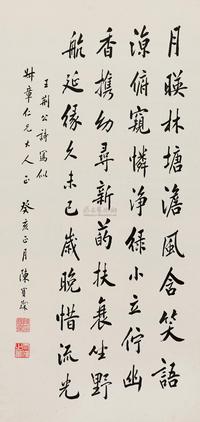 月暎林塘澹風含笑語
涼俯窺憐淨綠小立佇幽
香携幼尋新菂扶衰坐野
航延緣久未已歲晚惜流光
王荊公詩寫似
叔章仁兄大人正 癸亥正月陳寶琛